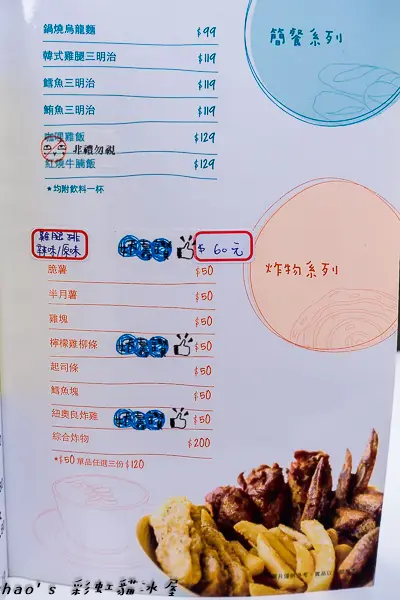 簡餐系列
鍋燒烏龍麵 $99
韓式雞腿三明治 $119
鱈魚三明治 $119
鮪魚三明治 $119
咖哩雞飯 $129
非禮勿視
紅燒牛腩飯 $129
*均附飲料一杯
炸物系列
雞腿排
辣味/原味 $60元
脆薯 $50
半月薯 $50
雞塊 $50
檸檬雞柳條 $50
起司條 $50
鱈魚塊 $50
紐奧良炸雞 $50
綜合炸物 $200
*$50單品任選三份$120
hao's 彩虹貓冰屋